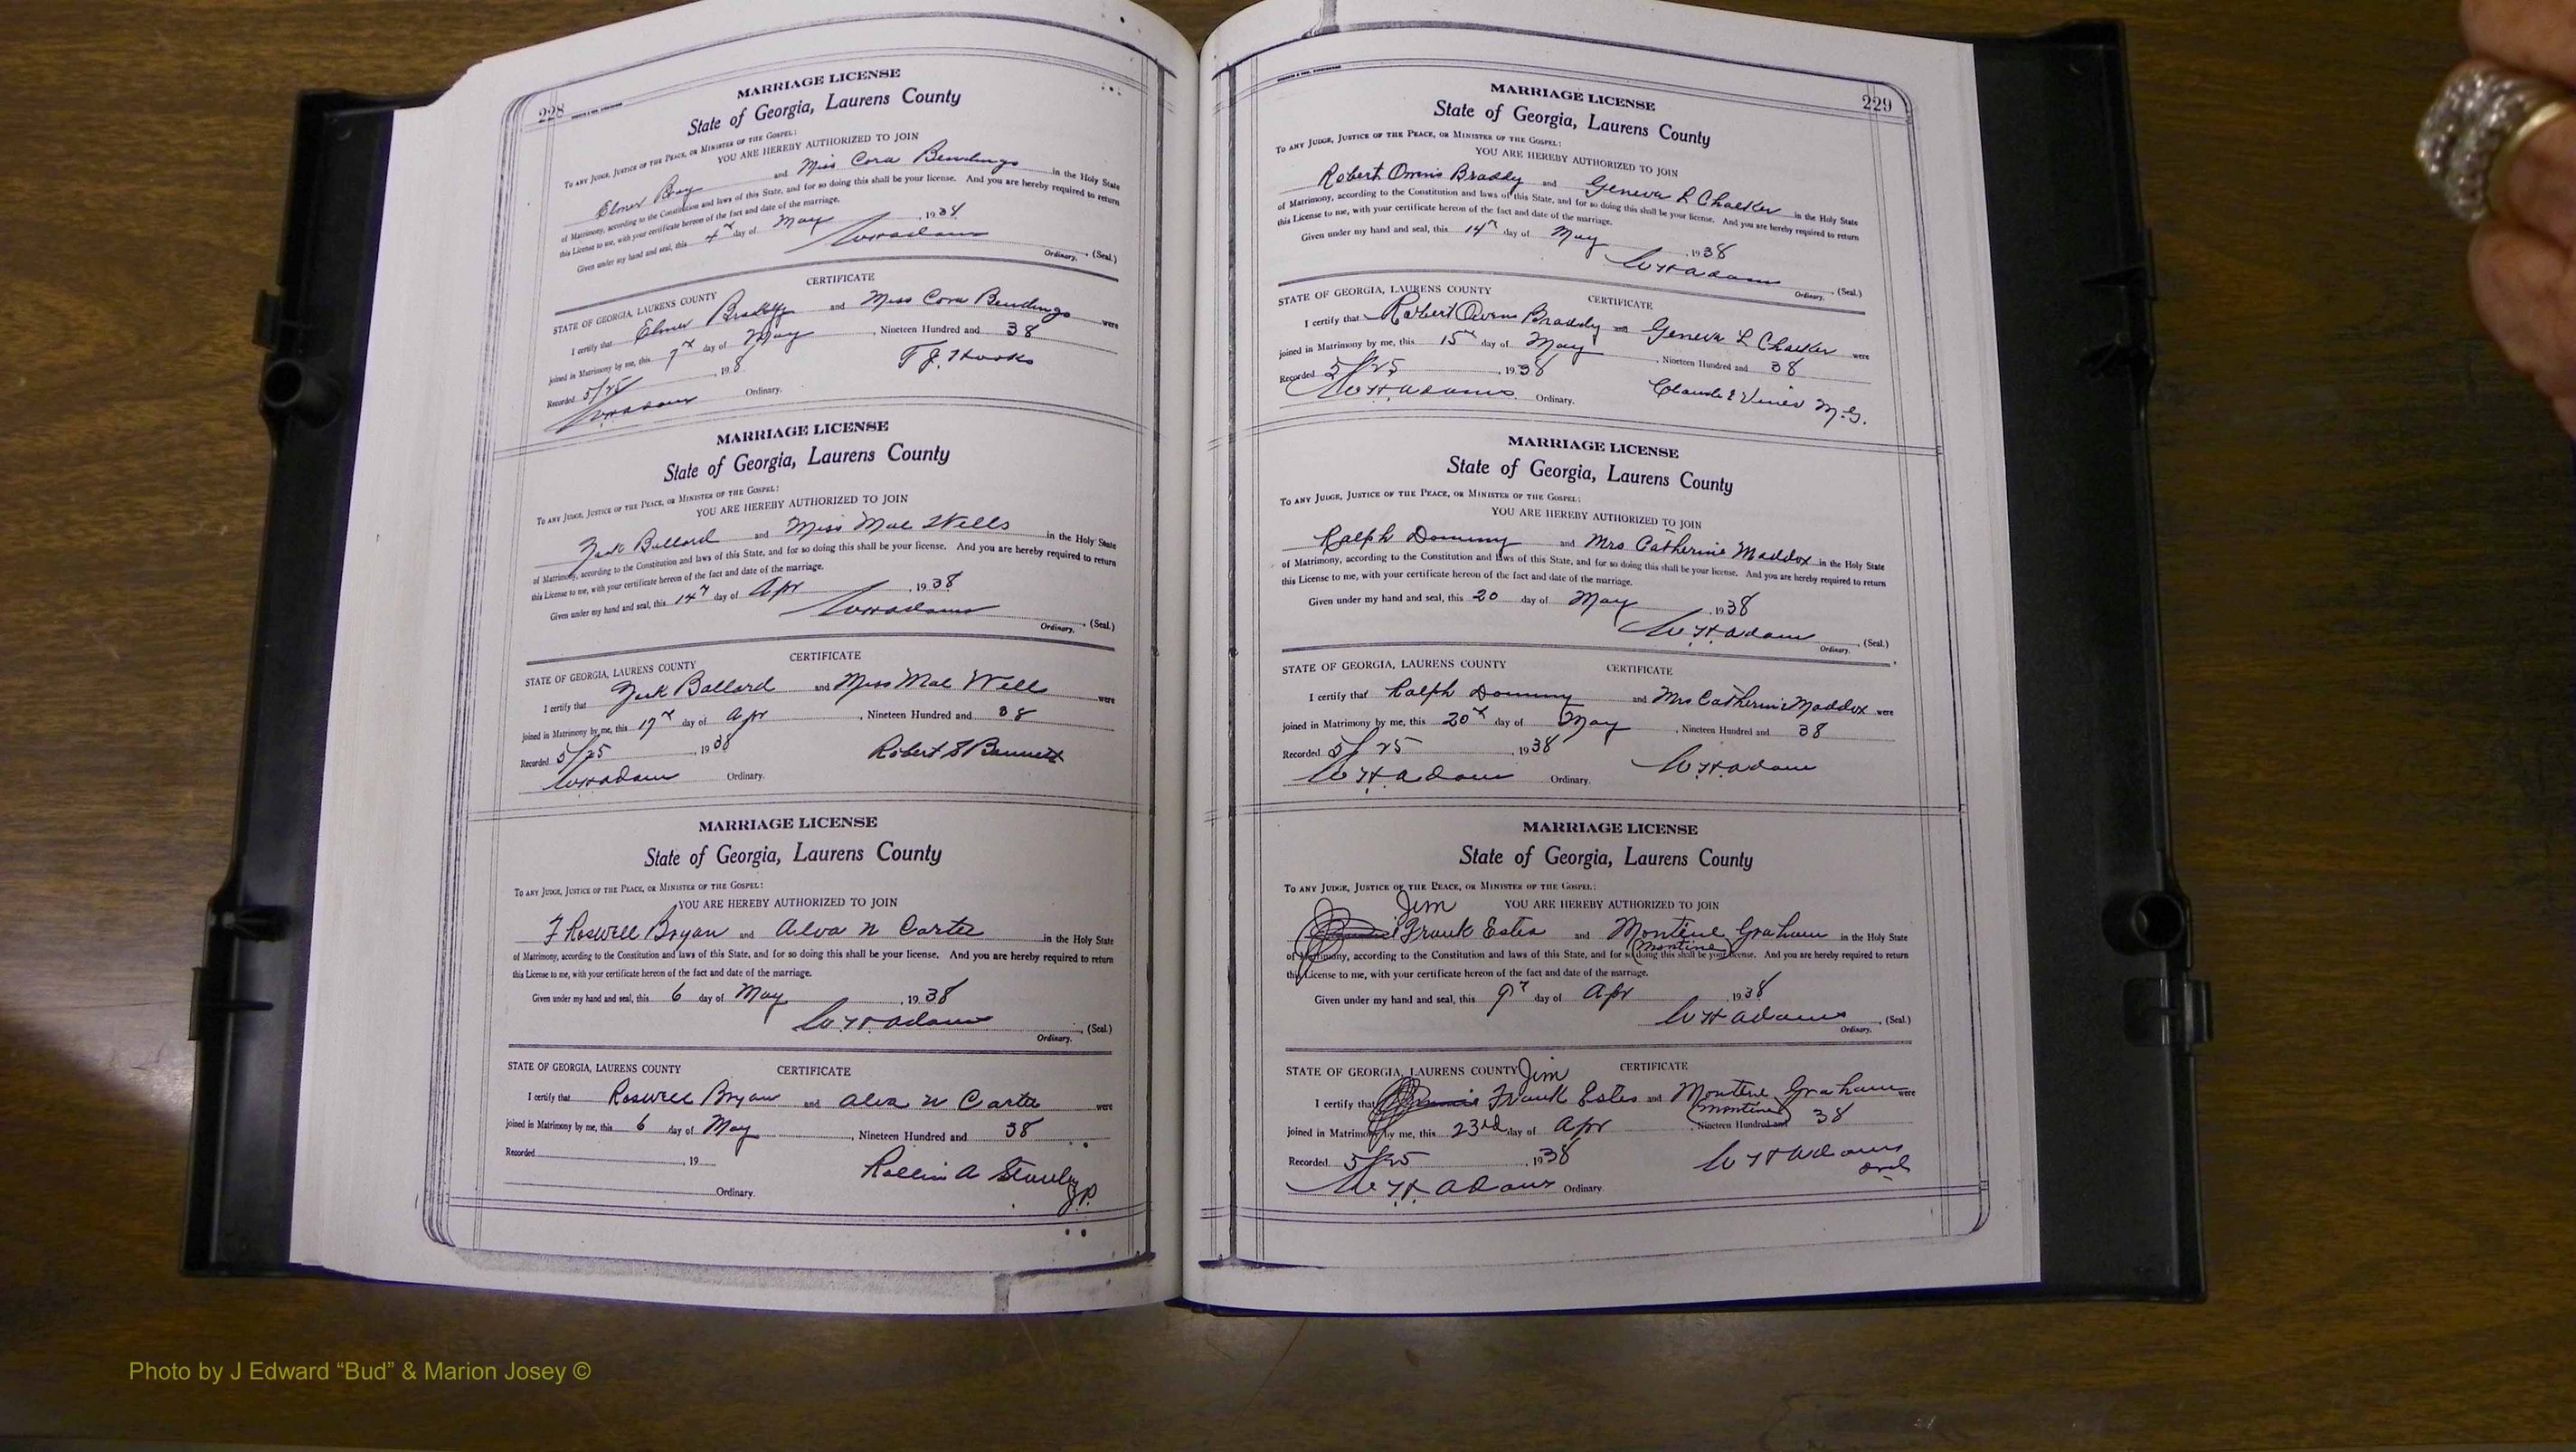 228
MARRIAGE LICENSE
State of Georgia, Laurens County
To any Judge, Justice of the Peace, or Minister of the Gospel:
YOU ARE HEREBY AUTHORIZED TO JOIN
Elmer and Miss Cora in the Holy State
of Matrimony, according to the Constitution and laws of this State, and for so doing this shall be your license. And you are hereby required to return
this License to me, with your certificate hereon of the fact and date of the marriage.
Given under my hand and seal, this 4th day of May, 1938
W H Adams
Ordinary. (Seal.)
CERTIFICATE
STATE OF GEORGIA, LAURENS COUNTY
I certify that Elmer and Miss Cora were
joined in Matrimony by me, this 7th day of May, Nineteen Hundred and 38
Recorded 5/25, 1938
T J Hooks
W H Adams Ordinary.
MARRIAGE LICENSE
State of Georgia, Laurens County
To any Judge, Justice of the Peace, or Minister of the Gospel:
YOU ARE HEREBY AUTHORIZED TO JOIN
Ballard and Miss Mae Wells in the Holy State
of Matrimony, according to the Constitution and laws of this State, and for so doing this shall be your license. And you are hereby required to return
this License to me, with your certificate hereon of the fact and date of the marriage.
Given under my hand and seal, this 14th day of Apr, 1938
W H Adams
Ordinary. (Seal.)
CERTIFICATE
STATE OF GEORGIA, LAURENS COUNTY
I certify that Ballard and Miss Mae Wells were
joined in Matrimony by me, this 17th day of Apr, Nineteen Hundred and 38
Recorded 5/25, 1938
Robert S Bennett
W H Adams Ordinary.
MARRIAGE LICENSE
State of Georgia, Laurens County
To any Judge, Justice of the Peace, or Minister of the Gospel:
YOU ARE HEREBY AUTHORIZED TO JOIN
F Roswell Bryan and Alva N Carter in the Holy State
of Matrimony, according to the Constitution and laws of this State, and for so doing this shall be your license. And you are hereby required to return
this License to me, with your certificate hereon of the fact and date of the marriage.
Given under my hand and seal, this 6 day of May, 1938
W H Adams
Ordinary. (Seal.)
STATE OF GEORGIA, LAURENS COUNTY CERTIFICATE
I certify that Roswell Bryan and Alva N Carter were
joined in Matrimony by me, this 6 day of May, Nineteen Hundred and 38
Recorded, 19
Rollin A Stanley
J.P.
Ordinary.
229
MARRIAGE LICENSE
State of Georgia, Laurens County
To any Judge, Justice of the Peace, or Minister of the Gospel:
YOU ARE HEREBY AUTHORIZED TO JOIN
Robert Owens Braddy and Geneva L Chalker in the Holy State
of Matrimony, according to the Constitution and laws of this State, and for so doing this shall be your license. And you are hereby required to return
this License to me, with your certificate hereon of the fact and date of the marriage.
Given under my hand and seal, this 14th day of May, 1938
W H Adams
Ordinary. (Seal.)
STATE OF GEORGIA, LAURENS COUNTY CERTIFICATE
I certify that Robert Owens Braddy and Geneva L Chalker were
joined in Matrimony by me, this 15th day of May, Nineteen Hundred and 38
Recorded 5/25, 1938
W H Adams Ordinary.
Claude E Vines M.G.
MARRIAGE LICENSE
State of Georgia, Laurens County
To any Judge, Justice of the Peace, or Minister of the Gospel:
YOU ARE HEREBY AUTHORIZED TO JOIN
Ralph Dominy and Mrs Catherine Maddox in the Holy State
of Matrimony, according to the Constitution and laws of this State, and for so doing this shall be your license. And you are hereby required to return
this License to me, with your certificate hereon of the fact and date of the marriage.
Given under my hand and seal, this 20 day of May, 1938
W H Adams
Ordinary. (Seal.)
STATE OF GEORGIA, LAURENS COUNTY CERTIFICATE
I certify that Ralph Dominy and Mrs Catherine Maddox were
joined in Matrimony by me, this 20th day of May, Nineteen Hundred and 38
Recorded 5/25, 1938
W H Adams Ordinary. W H Adams
MARRIAGE LICENSE
State of Georgia, Laurens County
To any Judge, Justice of the Peace, or Minister of the Gospel:
Jim YOU ARE HEREBY AUTHORIZED TO JOIN
Frank Estes and Montine Graham in the Holy State
(Montine)
of Matrimony, according to the Constitution and laws of this State, and for so doing this shall be your license. And you are hereby required to return
this License to me, with your certificate hereon of the fact and date of the marriage.
Given under my hand and seal, this 9th day of Apr, 1938
W H Adams
Ordinary. (Seal.)
STATE OF GEORGIA, LAURENS COUNTY Jim CERTIFICATE
I certify that Frank Estes and Montine Graham were
(Montine)
joined in Matrimony by me, this 23rd day of Apr, Nineteen Hundred and 38
Recorded 5/25, 1938
W H Adams
Ord
W H Adams Ordinary.
Photo by J Edward “Bud” & Marion Josey ©